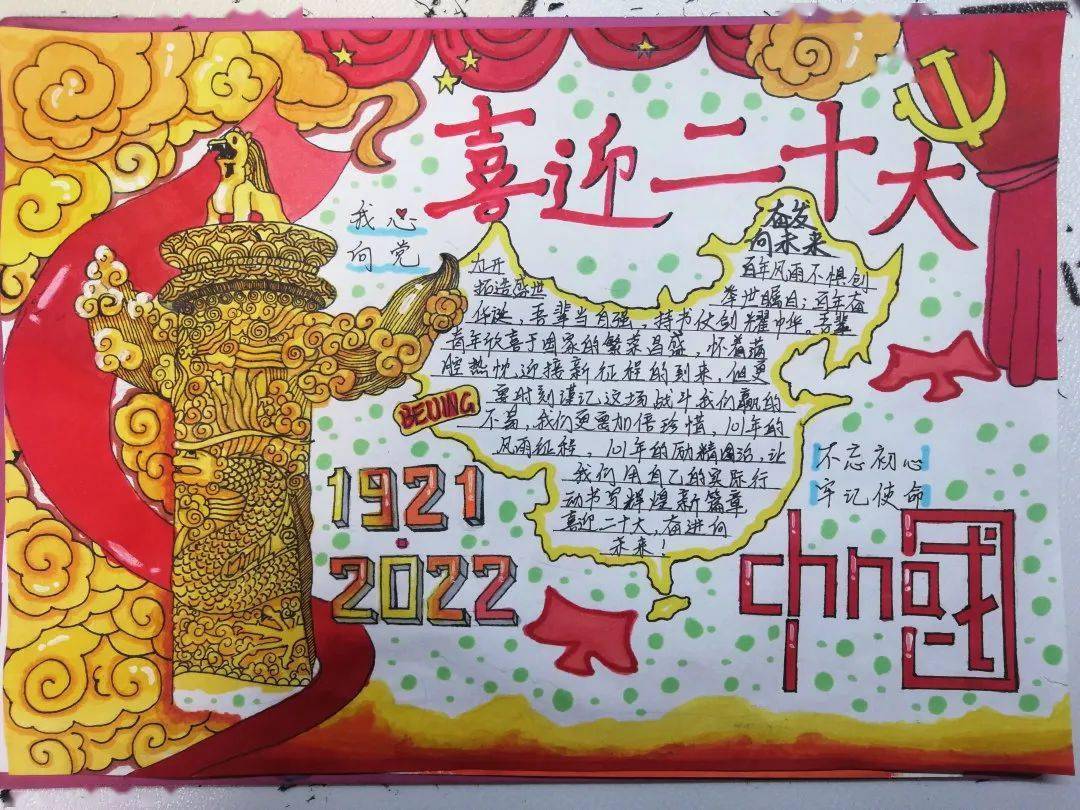 喜迎二十大
我心
向党
奋发
向未来
九开
拓造盛世
百年风雨不惧创
举世瞩目；百年奋
作进，吾辈当自强，持书仗剑耀中华。吾辈
青年欣喜于国家的繁荣昌盛，怀着满
腔热忱迎接新征程的到来，但更
要时刻谨记这场战斗我们赢的
不易，我们更要加倍珍惜，101年的
风雨征程，101年的励精图治，让
我们用自己的实际行
动书写辉煌新篇章
喜迎二十大，奋进向
未来！
BEIJING
1921
2022
不忘初心
牢记使命
china
中国